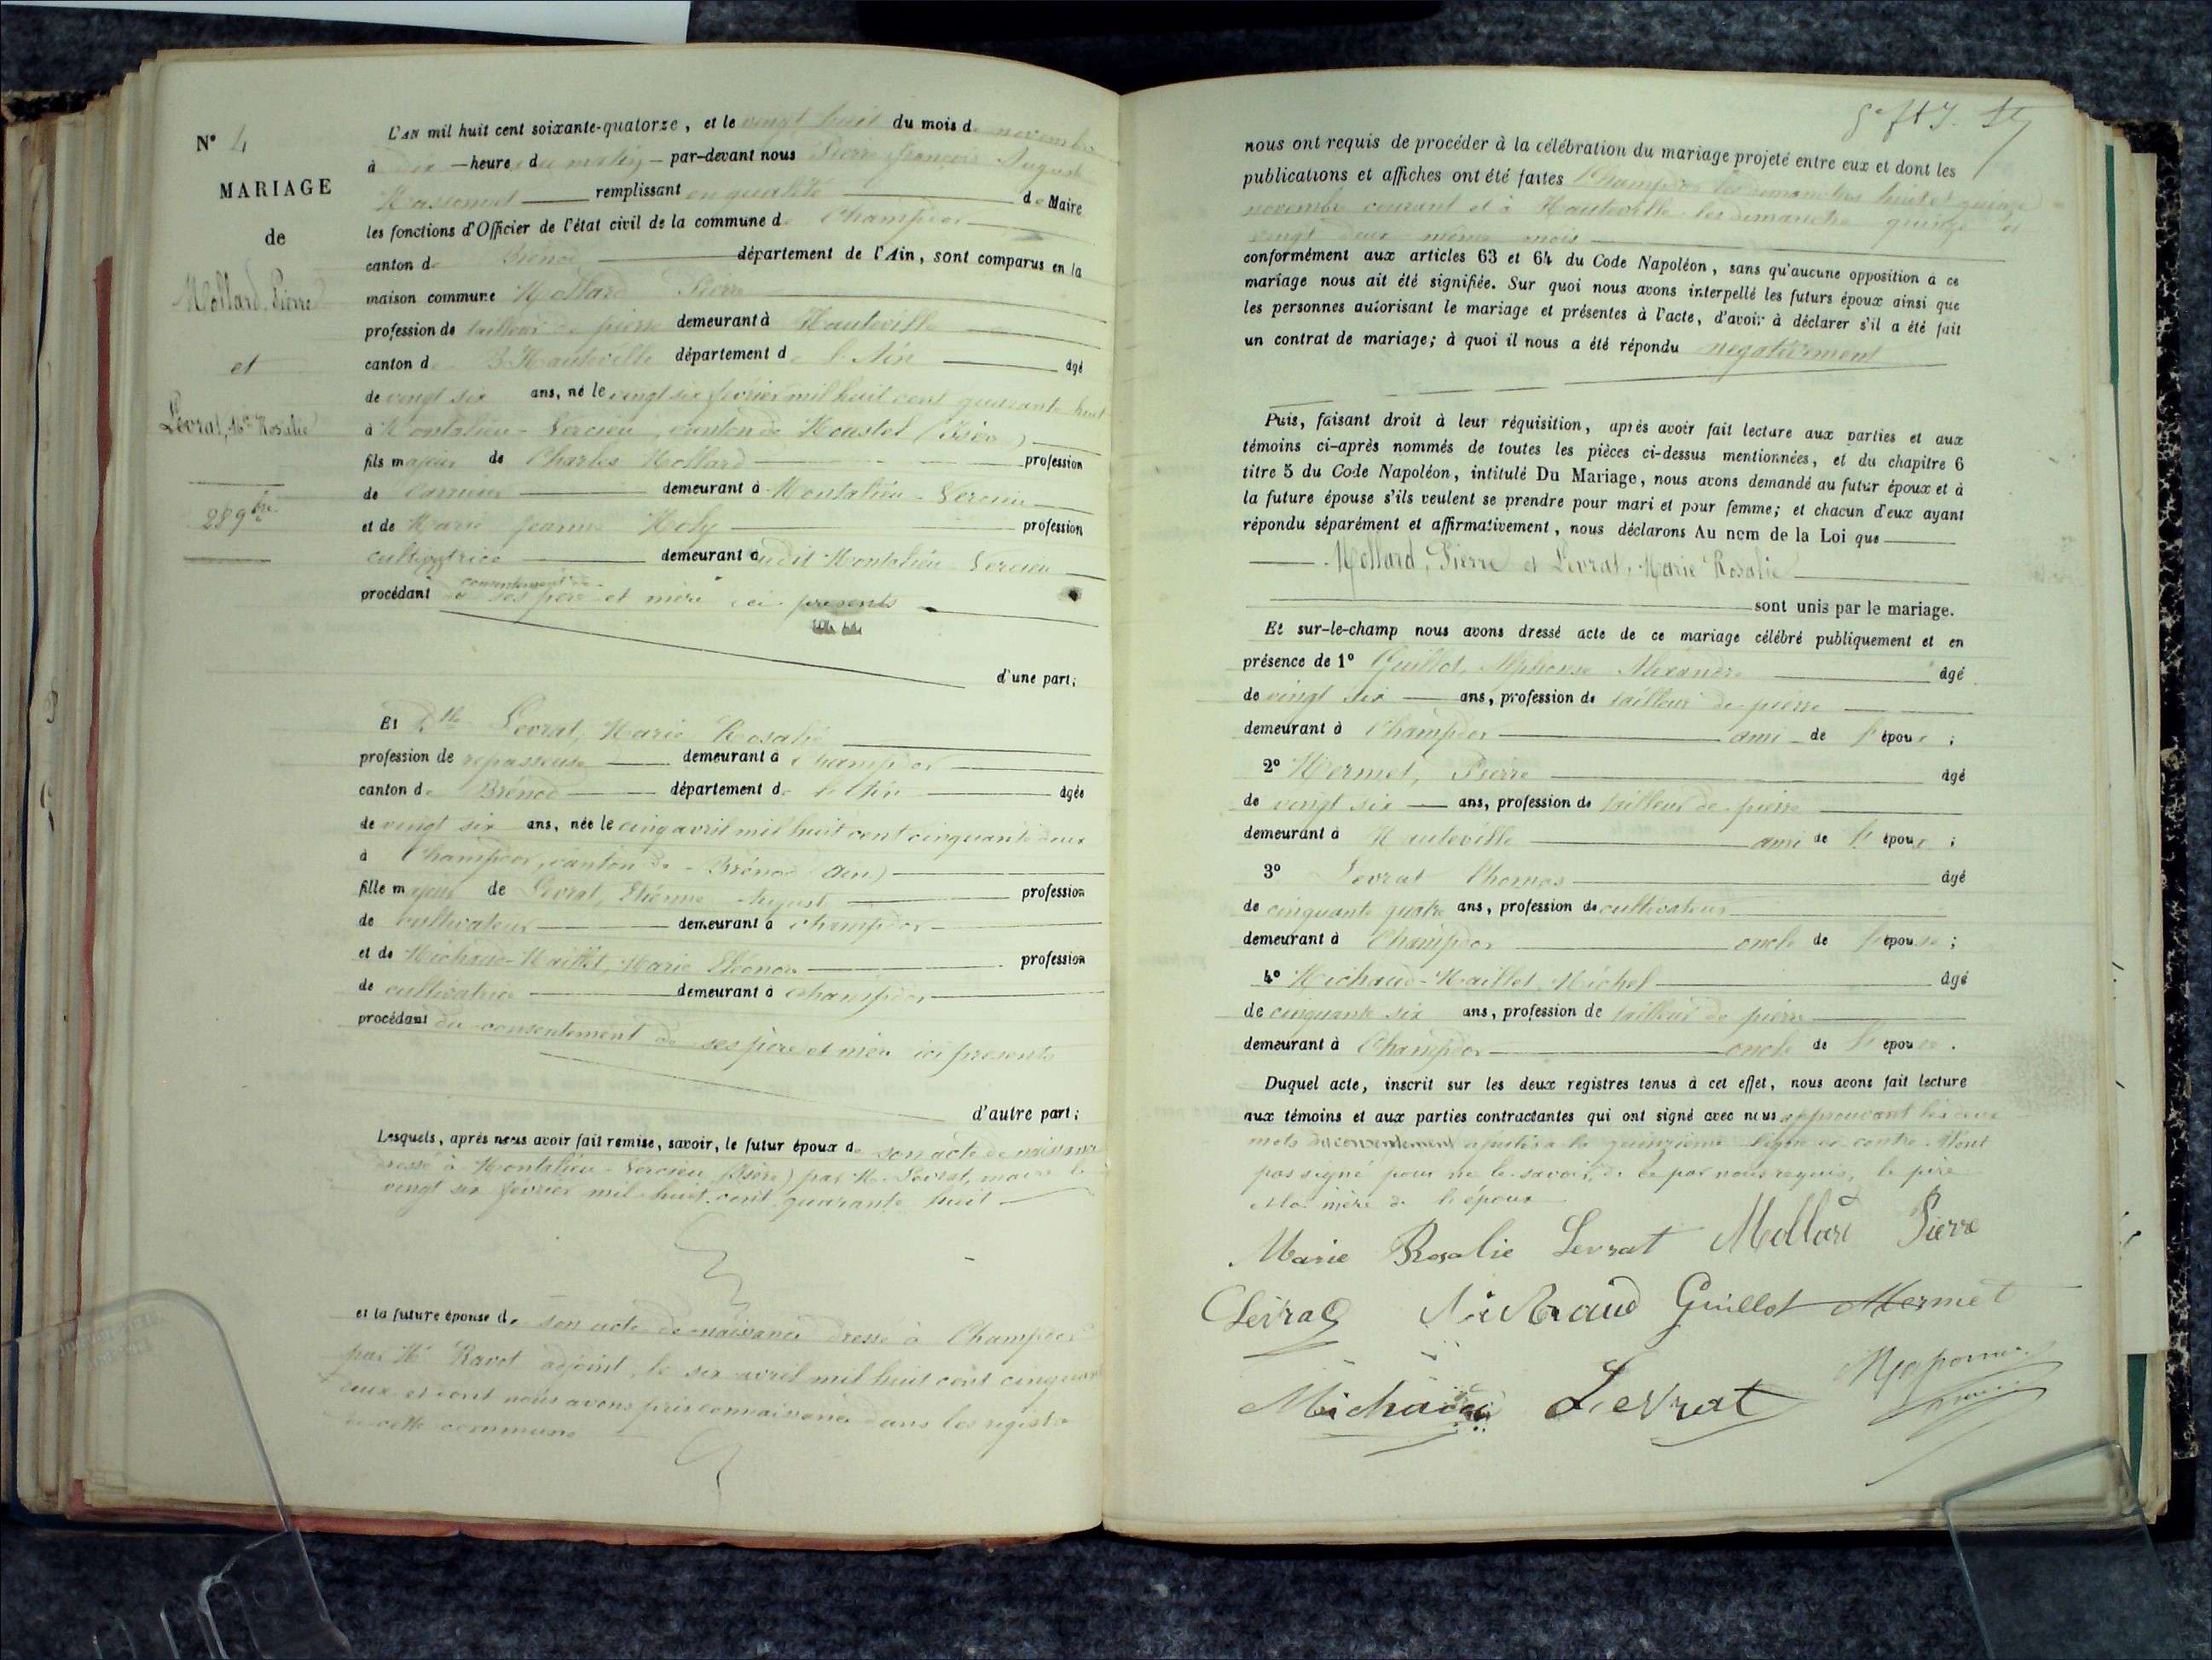 N° 4
MARIAGE
de
Mollard, Pierre
et
Levrat, Mie Rosalie
289
L'AN mil huit cent soixante-quatorze, et le vingt huit du mois de novembre
à dix heure du matin par-devant nous Pierre François August
remplissant en qualité de Maire
les fonctions d'Officier de l'état civil de la commune de Champdor
canton de Brénod département de l'Ain, sont comparus en la
maison commune Mollard Pierre
profession de tailleur de pierre demeurant à Hauteville
canton de Hauteville département de l'Ain âgé
de vingt six ans, né le vingt six février mil huit cent quarante huit
à Montalieu-Vercieu, canton de Morestel (Isère)
fils majeur de Charles Mollard profession
de carrieur demeurant à Montalieu-Vercieu
et de Marie Jeanne Moly profession
cultivatrice demeurant audit Montalieu Vercieu
consentement de
procédant ses père et mère ici présents
d'une part;
Et Dlle Levrat, Marie Rosalie
profession de repasseuse demeurant à Champdor
canton de Brénod département de l'Ain âgée
de vingt six ans, née le cinq avril mil huit cent cinquante deux
à Champdor, canton de Brénod (Ain)
fille majeur de Levrat, Etienne August profession
de cultivateur demeurant à Champdor
et de Michaud-Maillet, Marie Eléonore profession
de cultivatrice demeurant à Champdor
procédant du consentement de ses père et mère ici présents
d'autre part;
Lesquels, après nous avoir fait remise, savoir, le futur époux de son acte de naissance
dressé à Montalieu-Vercieu (Isère) par M. maire le
vingt six février mil huit cent quarante huit
et la future épouse de son acte de naissance dressé à Champdor
par Mr Ravot adjoint, le six avril mil huit cent cinquante
deux et dont nous avons pris connaissance dans les registres
de cette commune
nous ont requis de procéder à la célébration du mariage projeté entre eux et dont les
publications et affiches ont été faites Champdor les dimanches huit et quinze
novembre courant et à Hauteville les dimanche quinze et
vingt deux même mois
conformément aux articles 63 et 64 du Code Napoléon, sans qu'aucune opposition à ce
mariage nous ait été signifiée. Sur quoi nous avons interpellé les futurs époux ainsi que
les personnes autorisant le mariage et présentes à l'acte, d'avoir à déclarer s'il a été fait
un contrat de mariage; à quoi il nous a été répondu négativement
Puis, faisant droit à leur réquisition, après avoir fait lecture aux parties et aux
témoins ci-après nommés de toutes les pièces ci-dessus mentionnées, et du chapitre 6
titre 5 du Code Napoléon, intitulé Du Mariage, nous avons demandé au futur époux et à
la future épouse s'ils veulent se prendre pour mari et pour femme; et chacun d'eux ayant
répondu séparément et affirmativement, nous déclarons Au nom de la Loi que
Mollard, Pierre et Levrat, Marie Rosalie
sont unis par le mariage.
Et sur-le-champ nous avons dressé acte de ce mariage célébré publiquement et en
présence de 1° Guillot, Alphonse Alexandre âgé
de vingt six ans, profession de tailleur de pierre
demeurant à Champdor ami de l'époux;
2° Mermet, Pierre âgé
de vingt six ans, profession de tailleur de pierre
demeurant à Hauteville ami de l'époux;
3° Levrat Thomas âgé
de cinquante quatre ans, profession de cultivateur
demeurant à Champdor oncle de l'épouse;
4° Michaud-Maillet Michel âgé
de cinquante six ans, profession de tailleur de pierre
demeurant à Champdor oncle de l'épouse.
Duquel acte, inscrit sur les deux registres tenus à cet effet, nous avons fait lecture
aux témoins et aux parties contractantes qui ont signé avec nous approuvant les deux
mots du consentement ajoutés à la quinzième ligne ci contre. N'ont
pas signé pour ne le savoir, de ce par nous requis, le père
et la mère de l'époux
Marie Rosalie Levrat Mollard Pierre
Levrat Michaud Guillot Mermet
Michaud Levrat